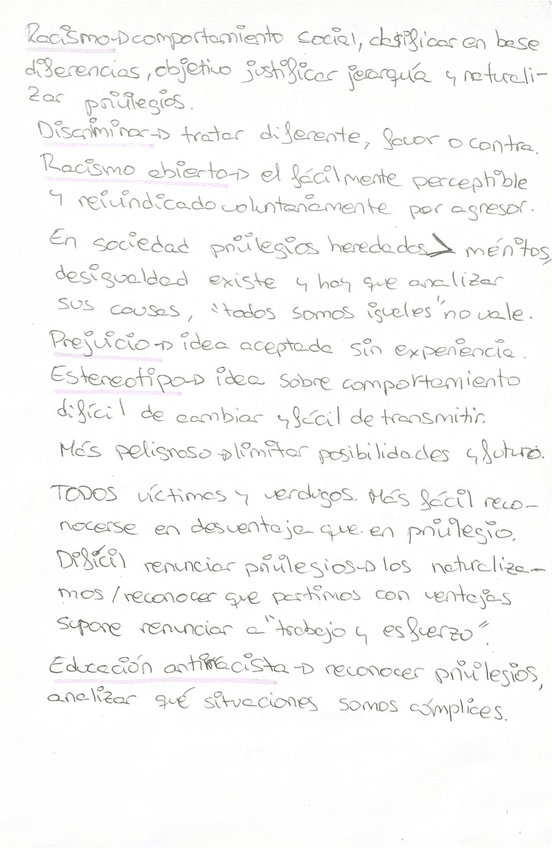 Racismo→comportamiento social, clasificar en base
diferencias, objetivo justificar jerarquía y naturali-
zar privilegios.
Discriminar→ tratar diferente, favor o contra.
Racismo abierto→ el fácilmente perceptible
y reivindicado voluntariamente por agresor.
En sociedad privilegios heredados > méritos,
desigualdad existe y hay que analizar
sus causas, "todos somos iguales" no vale.
Prejuicio→ idea aceptada sin experiencia.
Estereotipo→ idea sobre comportamiento
difícil de cambiar y fácil de transmitir.
Más peligroso→limitar posibilidades y futuro.
TODOS víctimas y verdugos. Más fácil reco-
nocerse en desventaja que en privilegio.
Difícil renunciar privilegios→ los naturaliza-
mos/reconocer que partimos con ventajas
supone renunciar a "trabajo y esfuerzo".
Educación antirracista→ reconocer privilegios,
analizar qué situaciones somos cómplices.